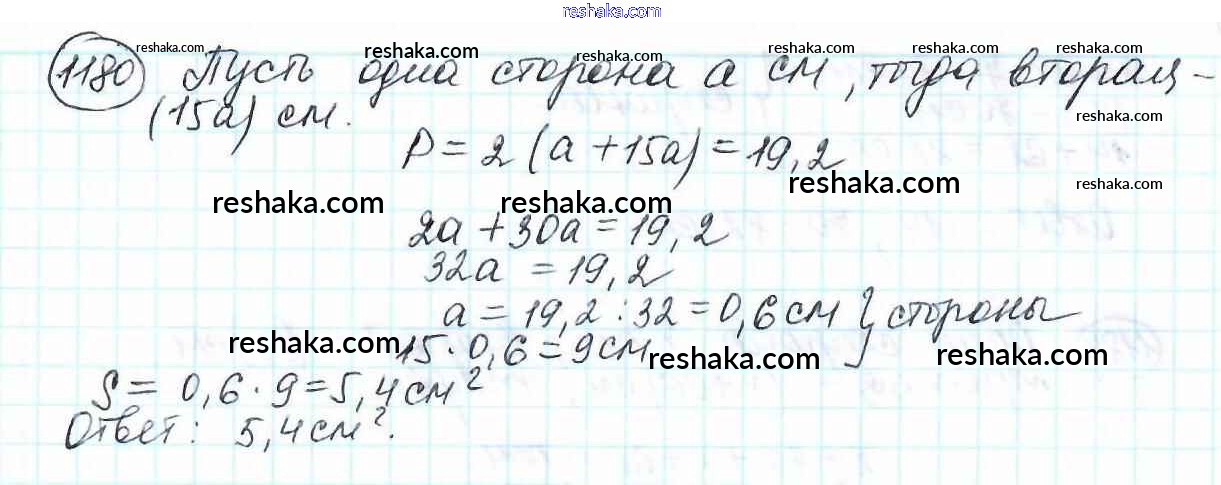 reshaka.com
1180 Пусть одна сторона а см, тогда вторая -
(15а) см.
P = 2 (а + 15а) = 19,2
2а + 30а = 19,2
32а = 19,2
а = 19,2 : 32 = 0,6 см } стороны
15 · 0,6 = 9 см
S = 0,6 · 9 = 5,4 см²
Ответ: 5,4 см².
reshaka.com
reshaka.com
reshaka.com
reshaka.com
reshaka.com
reshaka.com
reshaka.com
reshaka.com
reshaka.com
reshaka.com
reshaka.com
reshaka.com
reshaka.com
reshaka.com